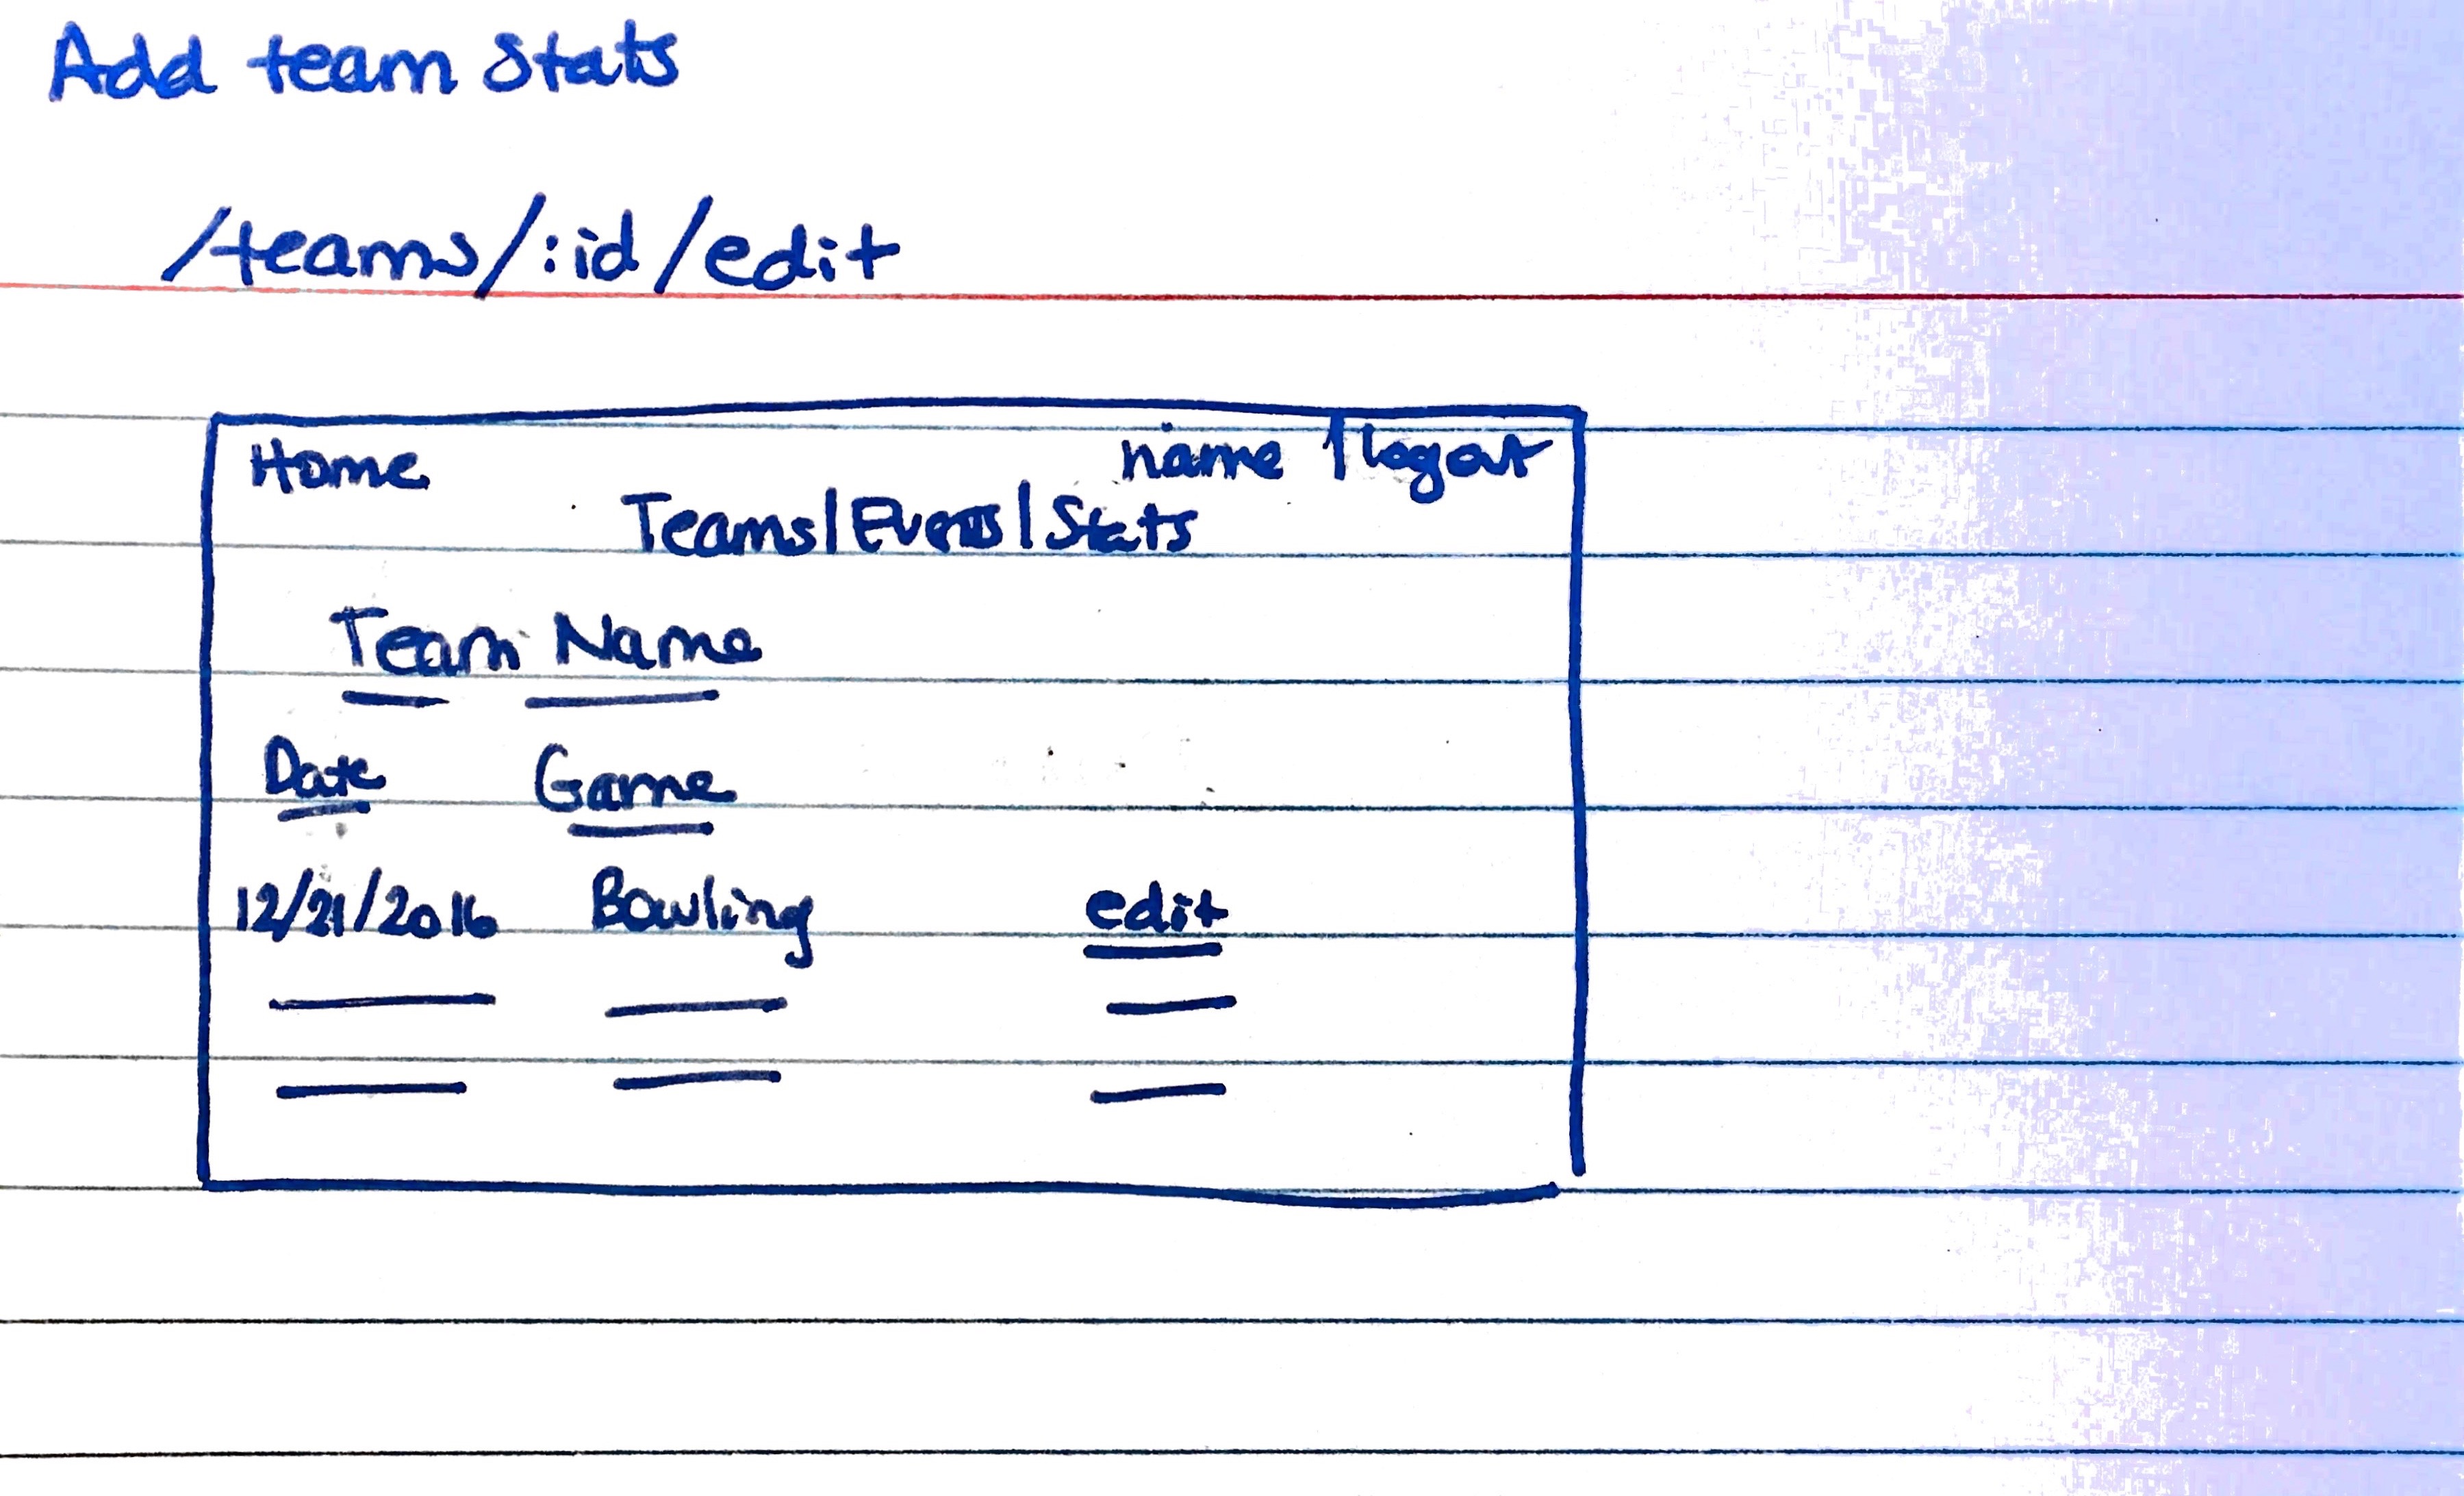 Add team Stats
/teams/:id/edit
Home name | logout
Teams|Events|Stats
Team Name
Date Game
12/21/2016 Bowling edit